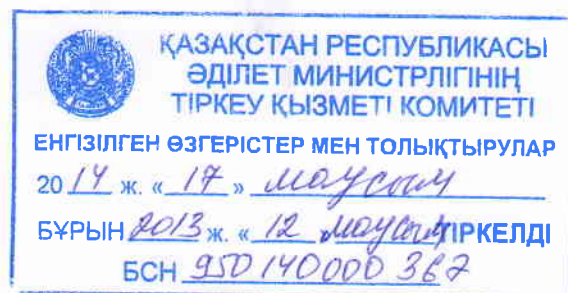 ҚАЗАҚСТАН РЕСПУБЛИКАСЫ
ӘДІЛЕТ МИНИСТРЛІГІНІҢ
ТІРКЕУ ҚЫЗМЕТІ КОМИТЕТІ
ЕНГІЗІЛГЕН ӨЗГЕРІСТЕР МЕН ТОЛЫҚТЫРУЛАР
20 14 ж. « 17 » маусым
БҰРЫН 2013 ж. « 12 маусым ТІРКЕЛДІ
БСН 950140000367